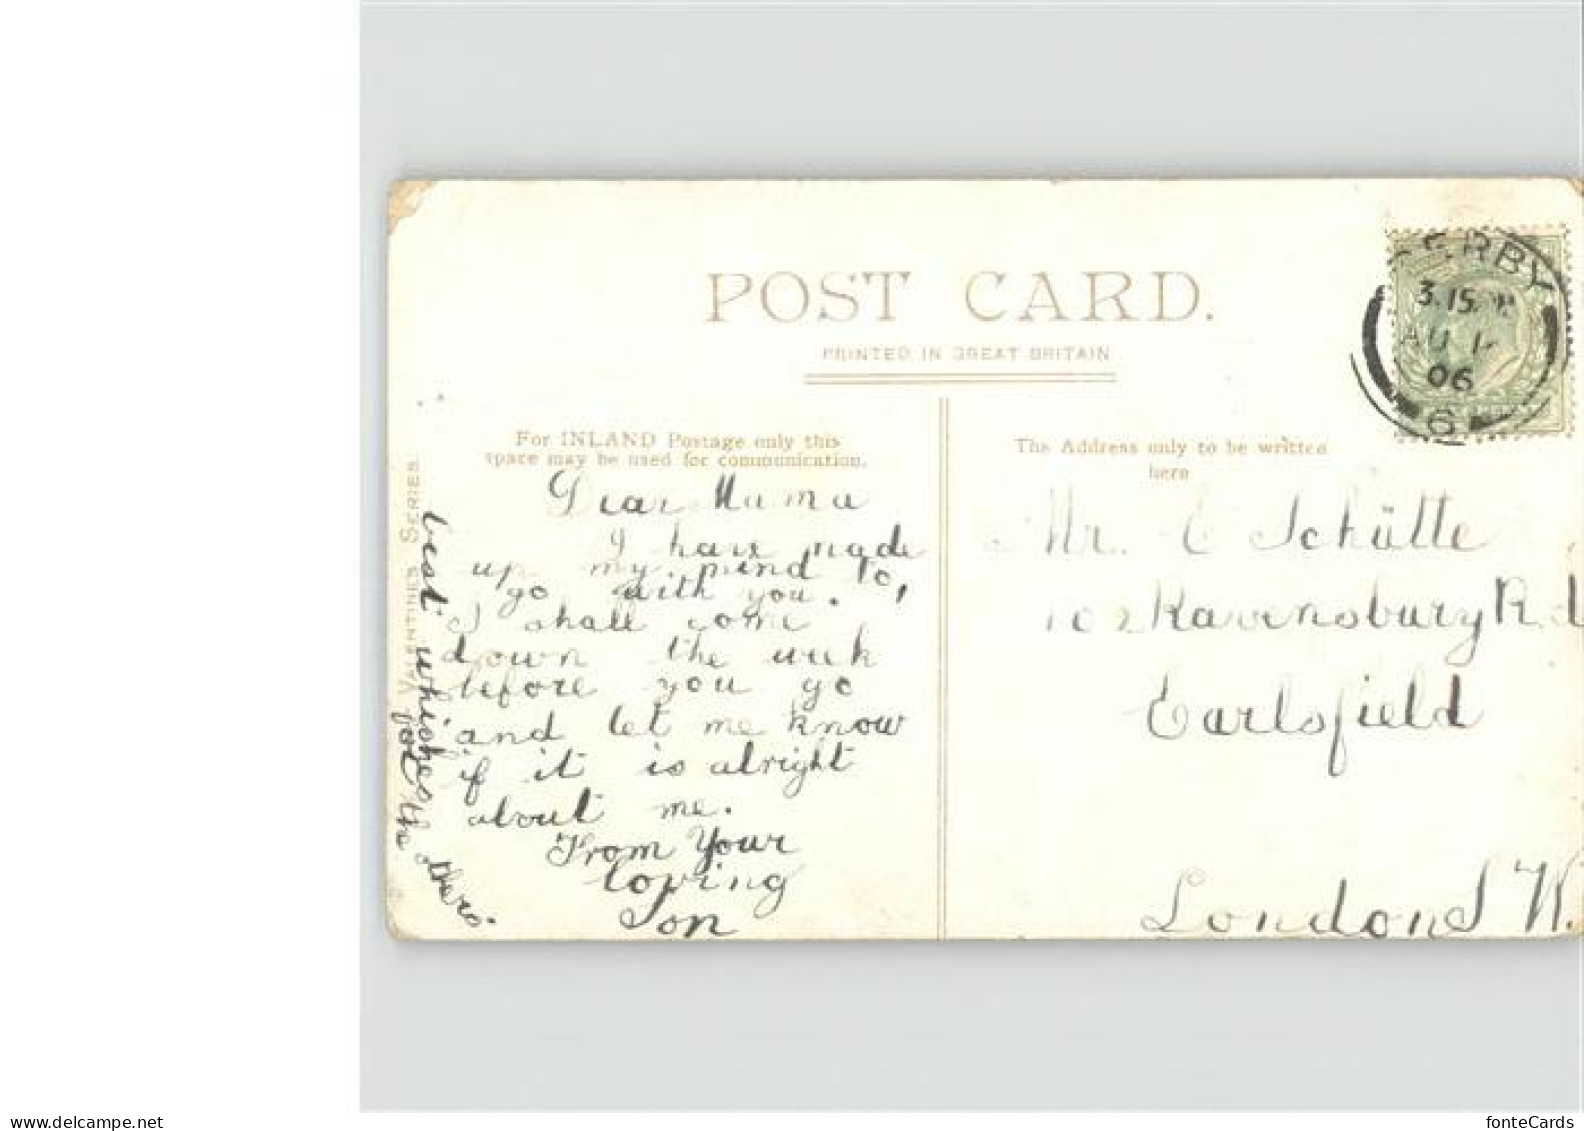 POST CARD.
PRINTED IN GREAT BRITAIN
For INLAND Postage only this
space may be used for communication.
The Address only to be written
here
ERBY
3.15
AU 1
06
6
Dear Mama
I have made
up my mind to,
go with you.
I shall come
down the week
before you go
and let me know
if it is alright
about me.
From Your
loving
Son
best whishes
for the others.
VALENTINES SERIES.
Mr. E Schütte
102 Ravensbury Rd
Earlsfield
London S W.
www.delcampe.net
fonteCards